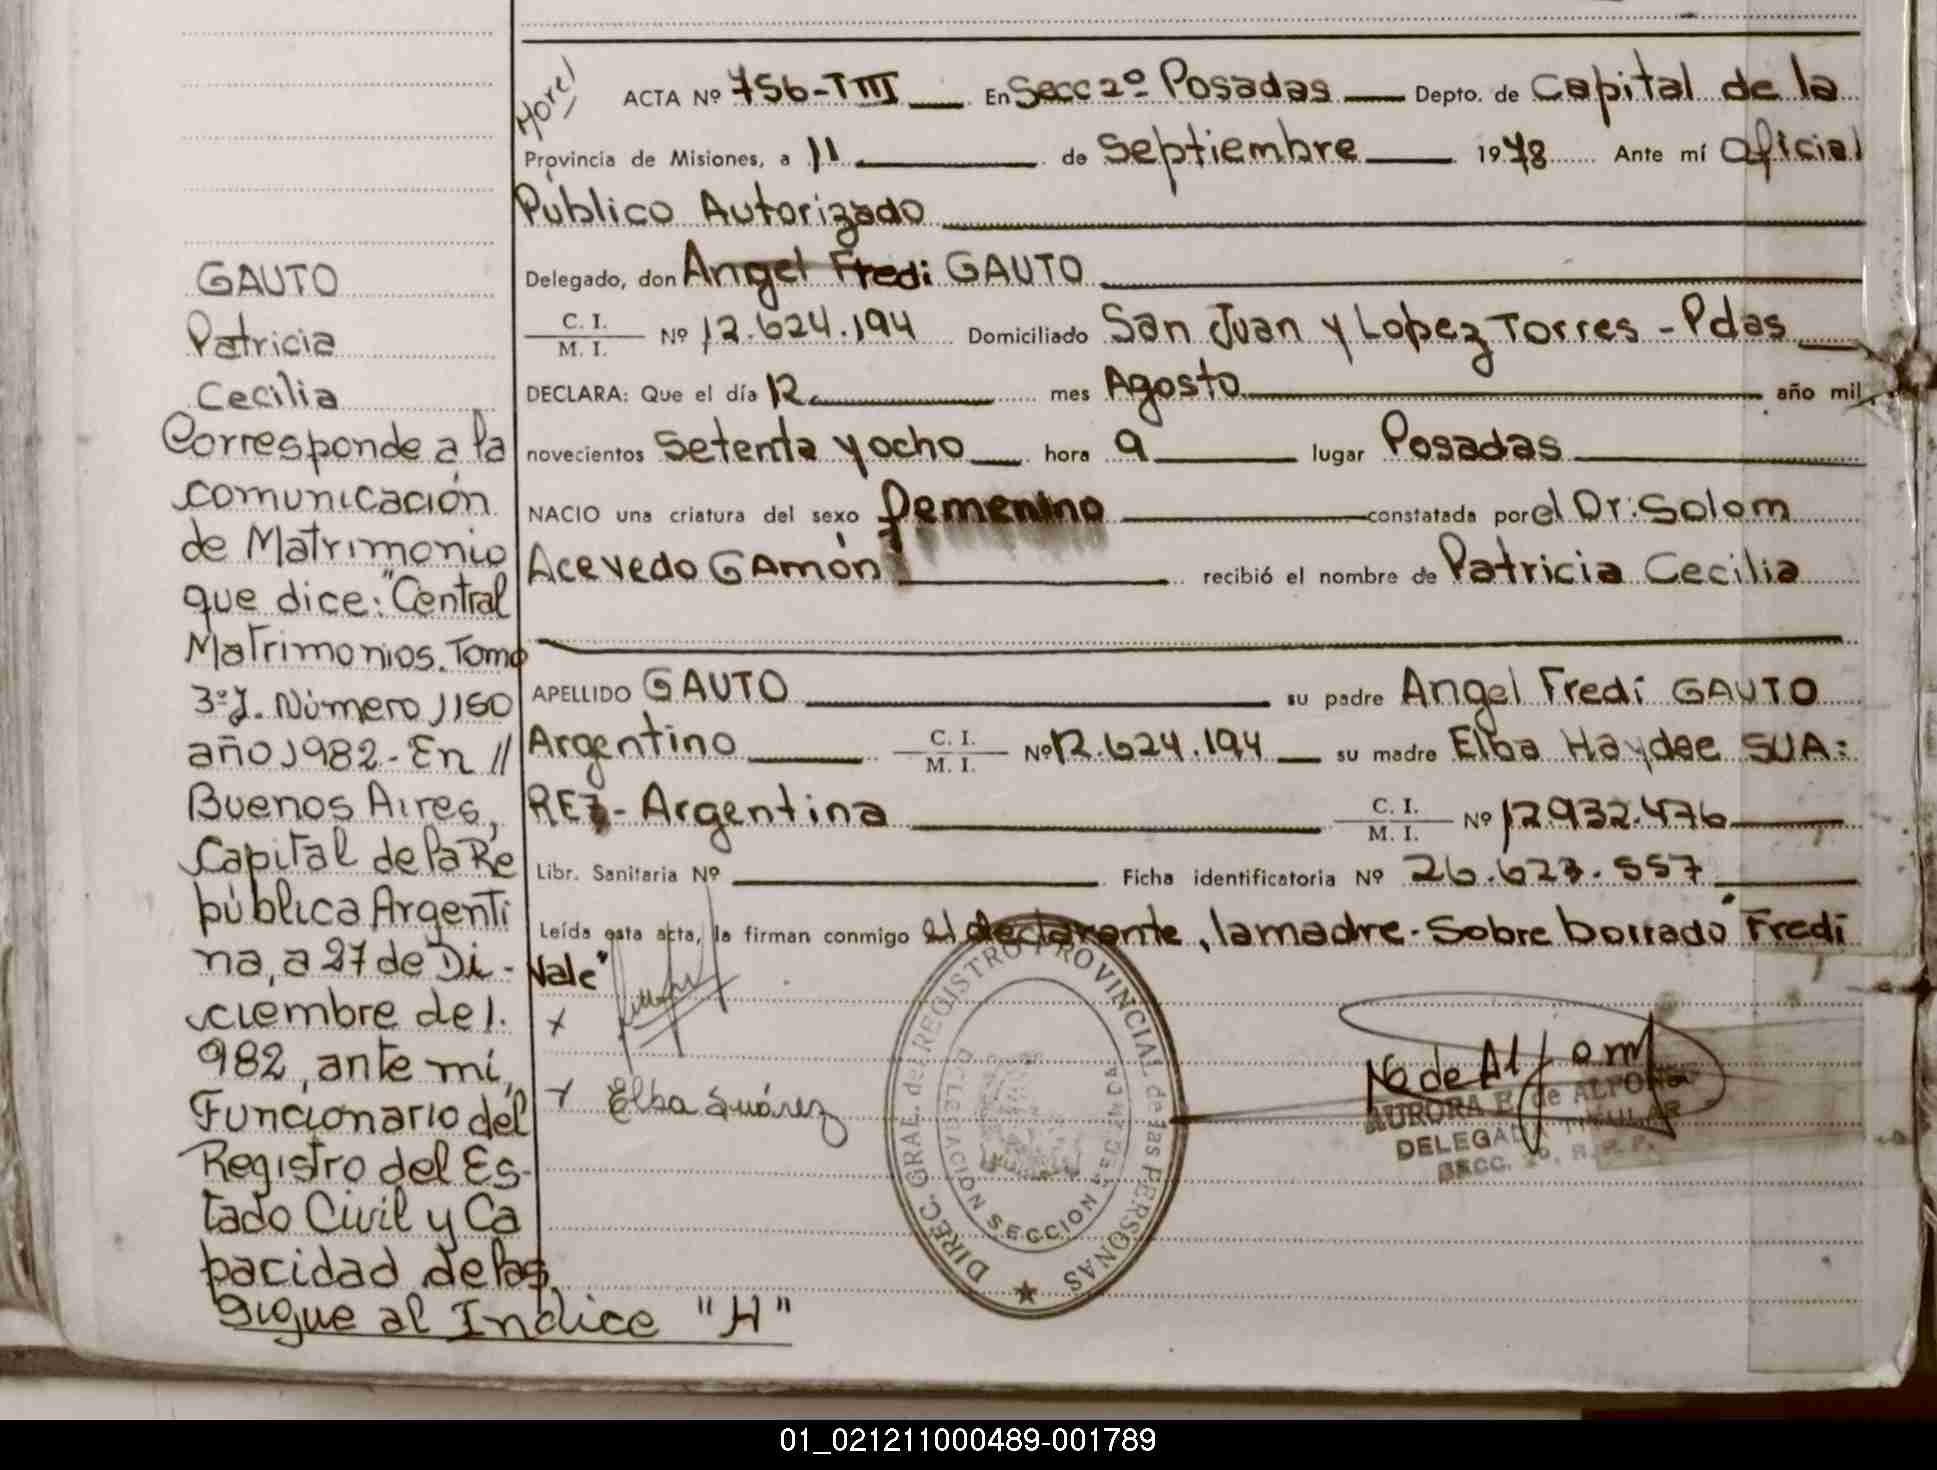 Morel
ACTA Nº 756-TIII En Secc 2º Posadas Depto. de Capital de la
Provincia de Misiones, a 11 de Septiembre 1978 Ante mí Oficial
Público Autorizado
Delegado, don Angel Fredi GAUTO
C. I.
M. I. Nº 12.624.194 Domiciliado San Juan y Lopez Torres - Pdas
DECLARA: Que el día 12 mes Agosto año mil
novecientos setenta y ocho hora 9 lugar Posadas
NACIO una criatura del sexo femenino constatada por el Dr: Solom
Acevedo GAmón recibió el nombre de Patricia Cecilia
APELLIDO GAUTO su padre Angel Fredi GAUTO
Argentino C. I.
M. I. Nº 12.624.194 su madre Elba Haydee SUA:
REZ - Argentina C. I.
M. I. Nº 12.932.476
Libr. Sanitaria Nº Ficha identificatoria Nº 26.627.557
Leída esta acta, la firman conmigo el declarante, la madre. Sobre borrado "Fredi
Vale"
x
x Elba Suárez
DIREC. GRAL. del REGISTRO PROVINCIAL de las PERSONAS
SECCION
AURORA E. de ALFONSO
DELEGADA TITULAR
SECC. 2a. R.P.P.
GAUTO
Patricia
Cecilia
Corresponde a la
comunicación
de Matrimonio
que dice: "Central
Matrimonios. Tomo
3ºJ. Número 1150
año 1982 - En //
Buenos Aires,
Capital de la Re
pública Argenti
na, a 27 de Di -
ciembre de 1.
982, ante mi,
Funcionario del
Registro del Es-
tado Civil y Ca
pacidad de las
Sigue al Indice "H"
01_021211000489-001789